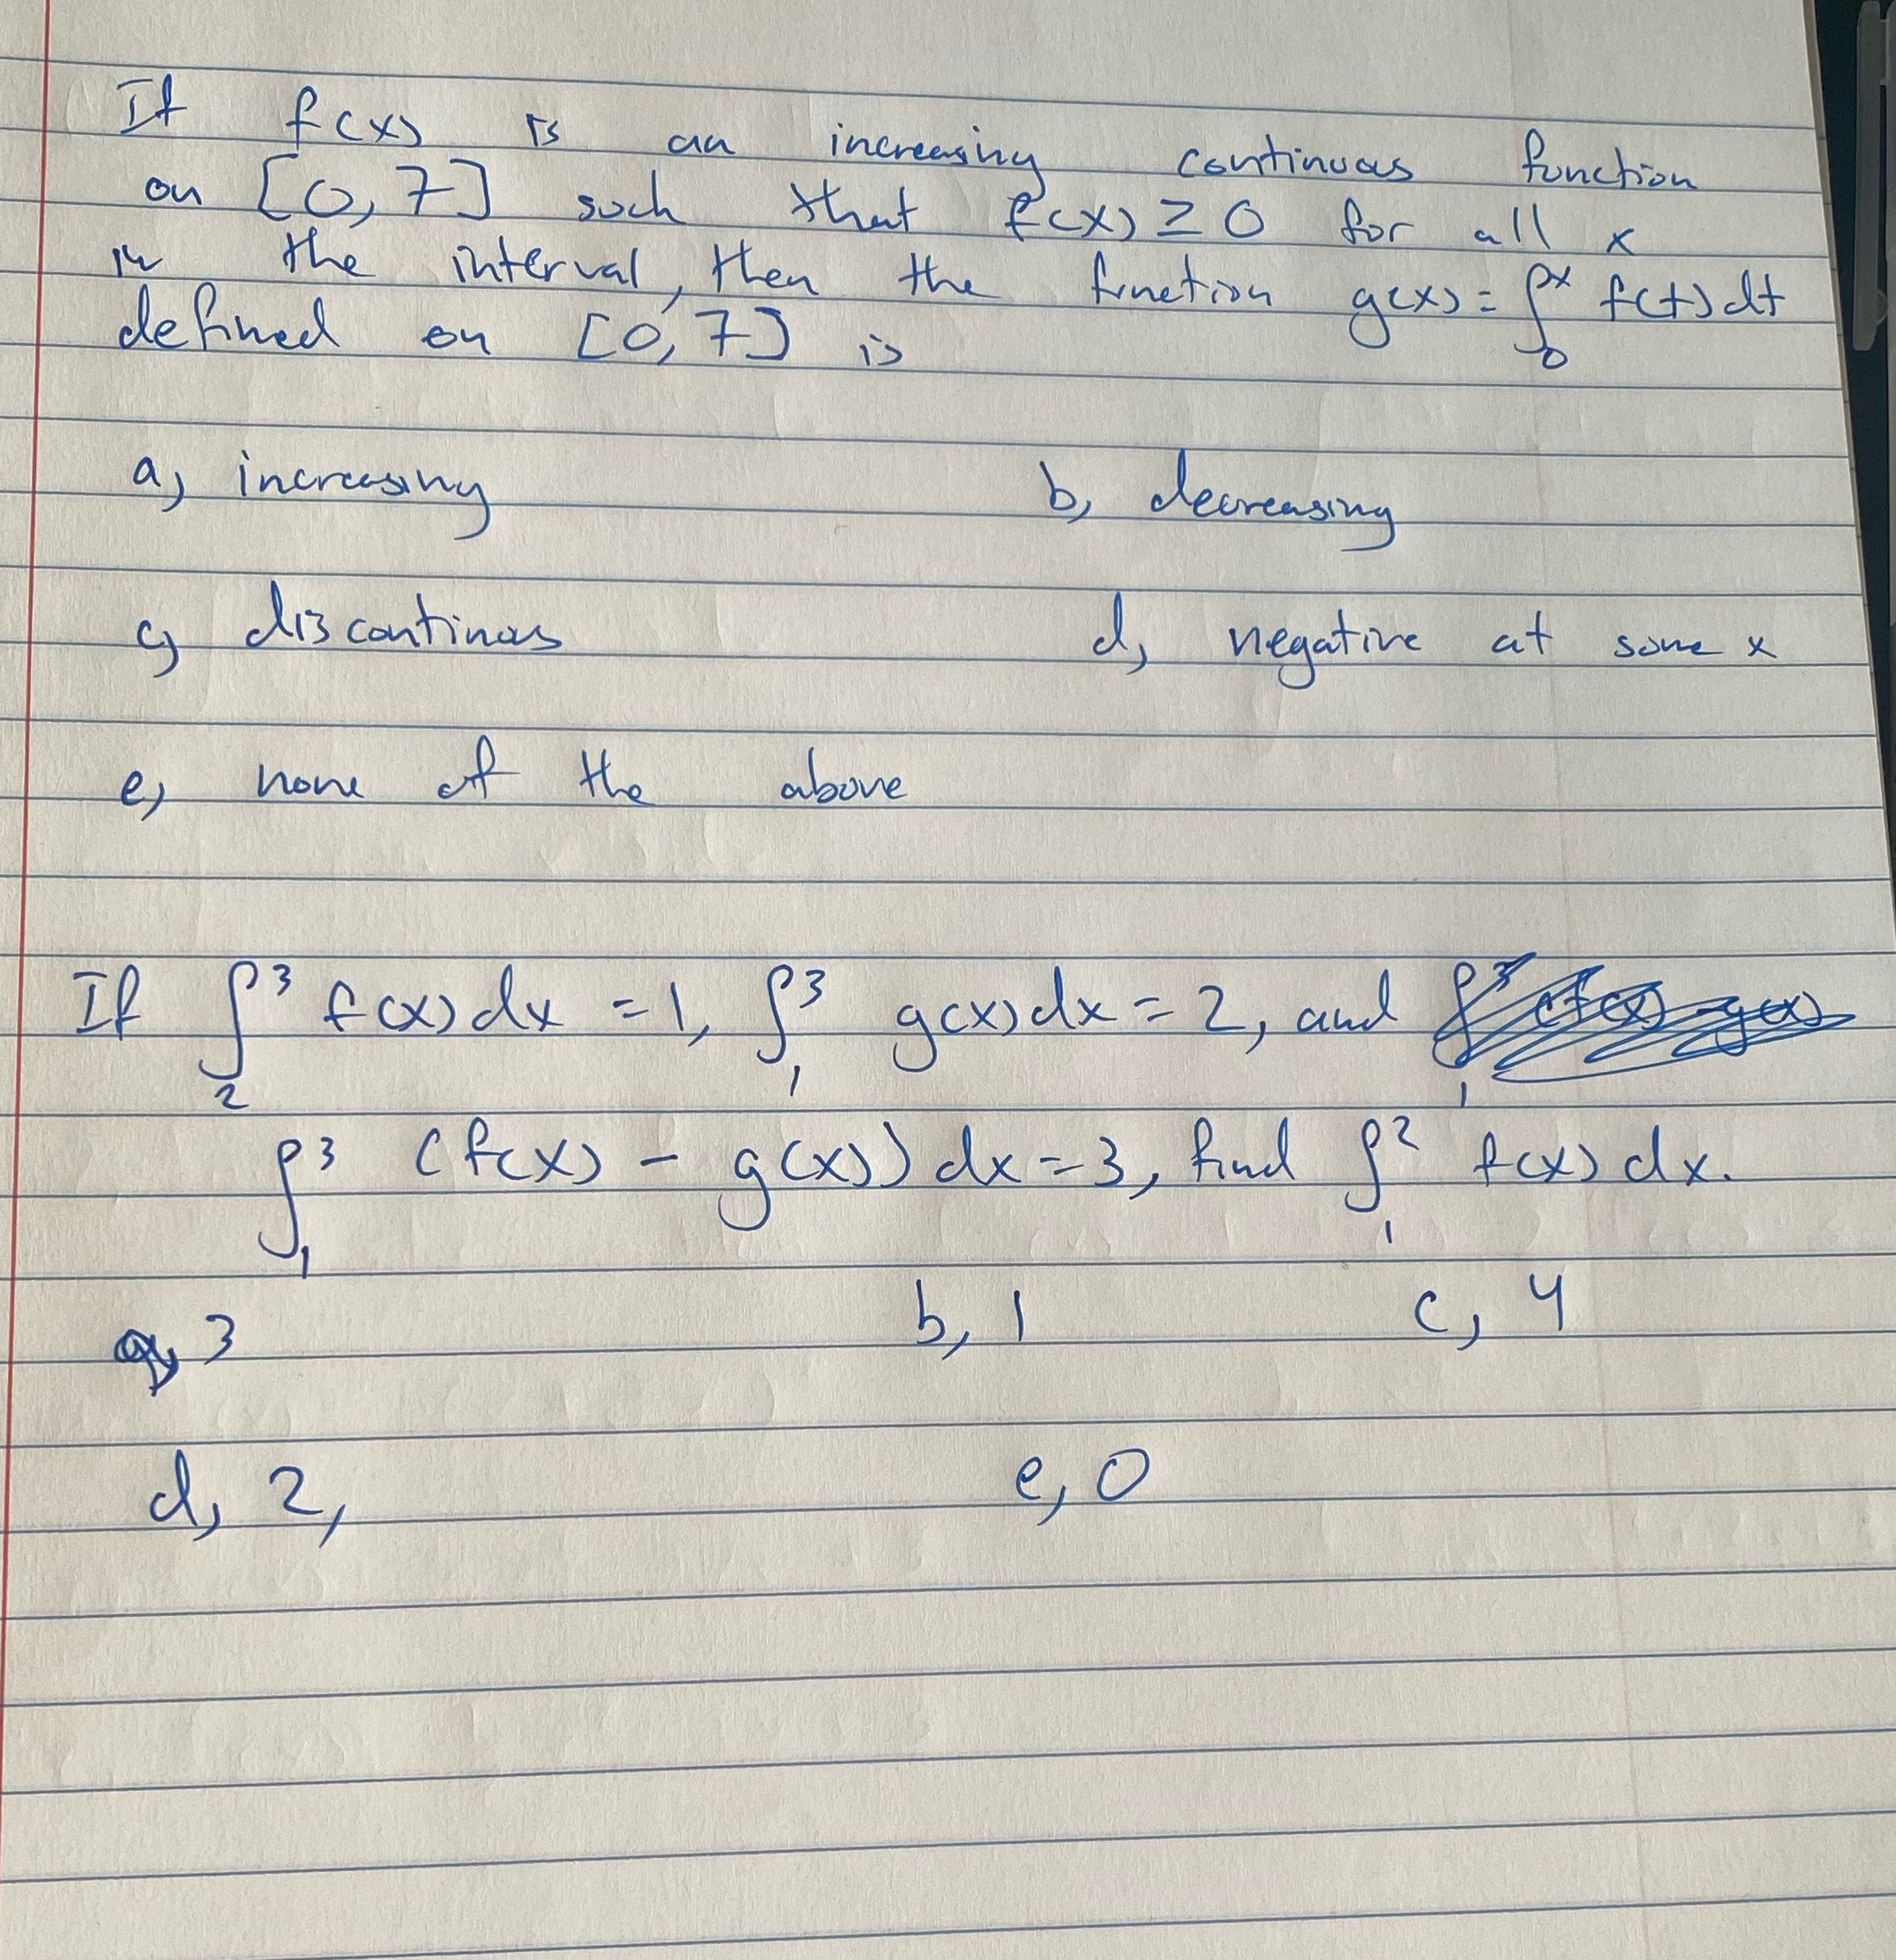 If f(x) is an increasing continuous function
on [0,7] such that f(x) ≥ 0 for all x
in the interval, then the function g(x) = ∫₀ˣ f(t)dt
defined on [0,7] is
a, increasing b, decreasing
c, discontinous d, negative at some x
e, none of the above
If ∫₂³ f(x)dx = 1, ∫₁³ g(x)dx = 2, and
∫₁³ (f(x) - g(x))dx = 3, find ∫₁² f(x)dx.
a, 3 b, 1 c, 4
d, 2, e, 0